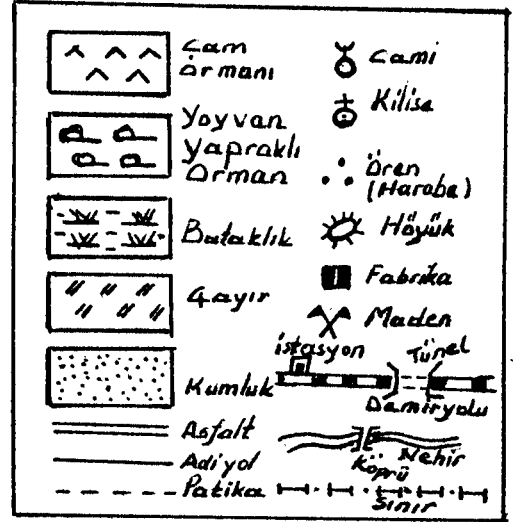 Çam
Ormanı
Yayvan
Yapraklı
Orman
Bataklık
Çayır
Kumluk
Asfalt
Adiyol
Patika
Cami
Kilise
Ören
(Harabe)
Höyük
Fabrika
Maden
istasyon
Tünel
Demiryolu
Köprü
Nehir
Sınır